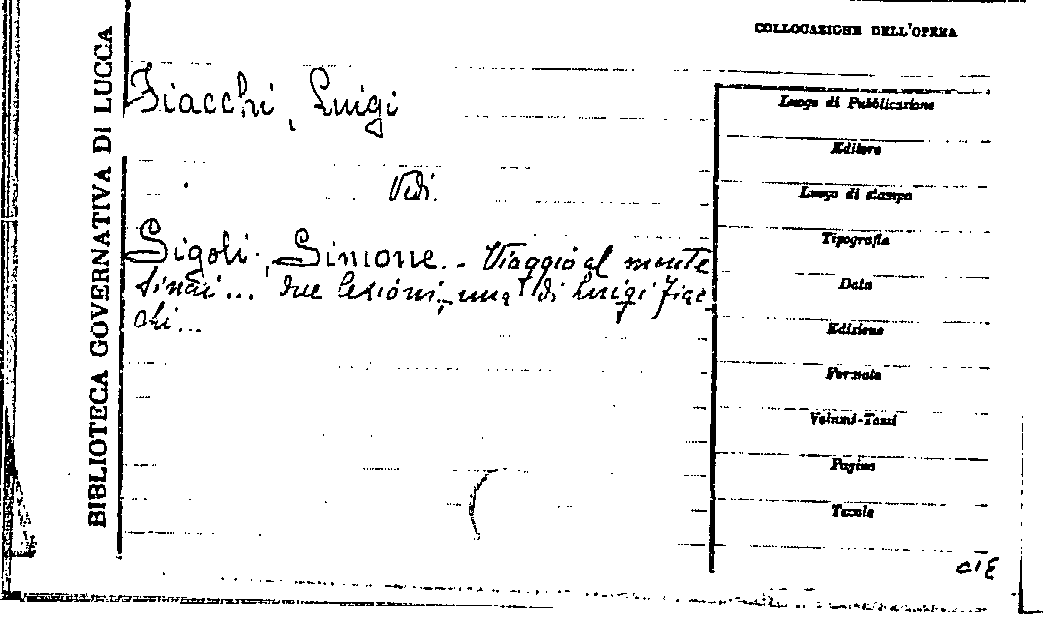 BIBLIOTECA GOVERNATIVA DI LUCCA
COLLOCAZIONE DELL'OPERA
Fiacchi, Luigi
Vedi
Sigoli, Simone.- Viaggio al monte
Sinai... due lezioni, una di Luigi Fiac
chi...
Luogo di Pubblicazione
Editore
Luogo di stampa
Tipografia
Data
Edizione
Formato
Volumi-Tomi
Pagine
Tavole